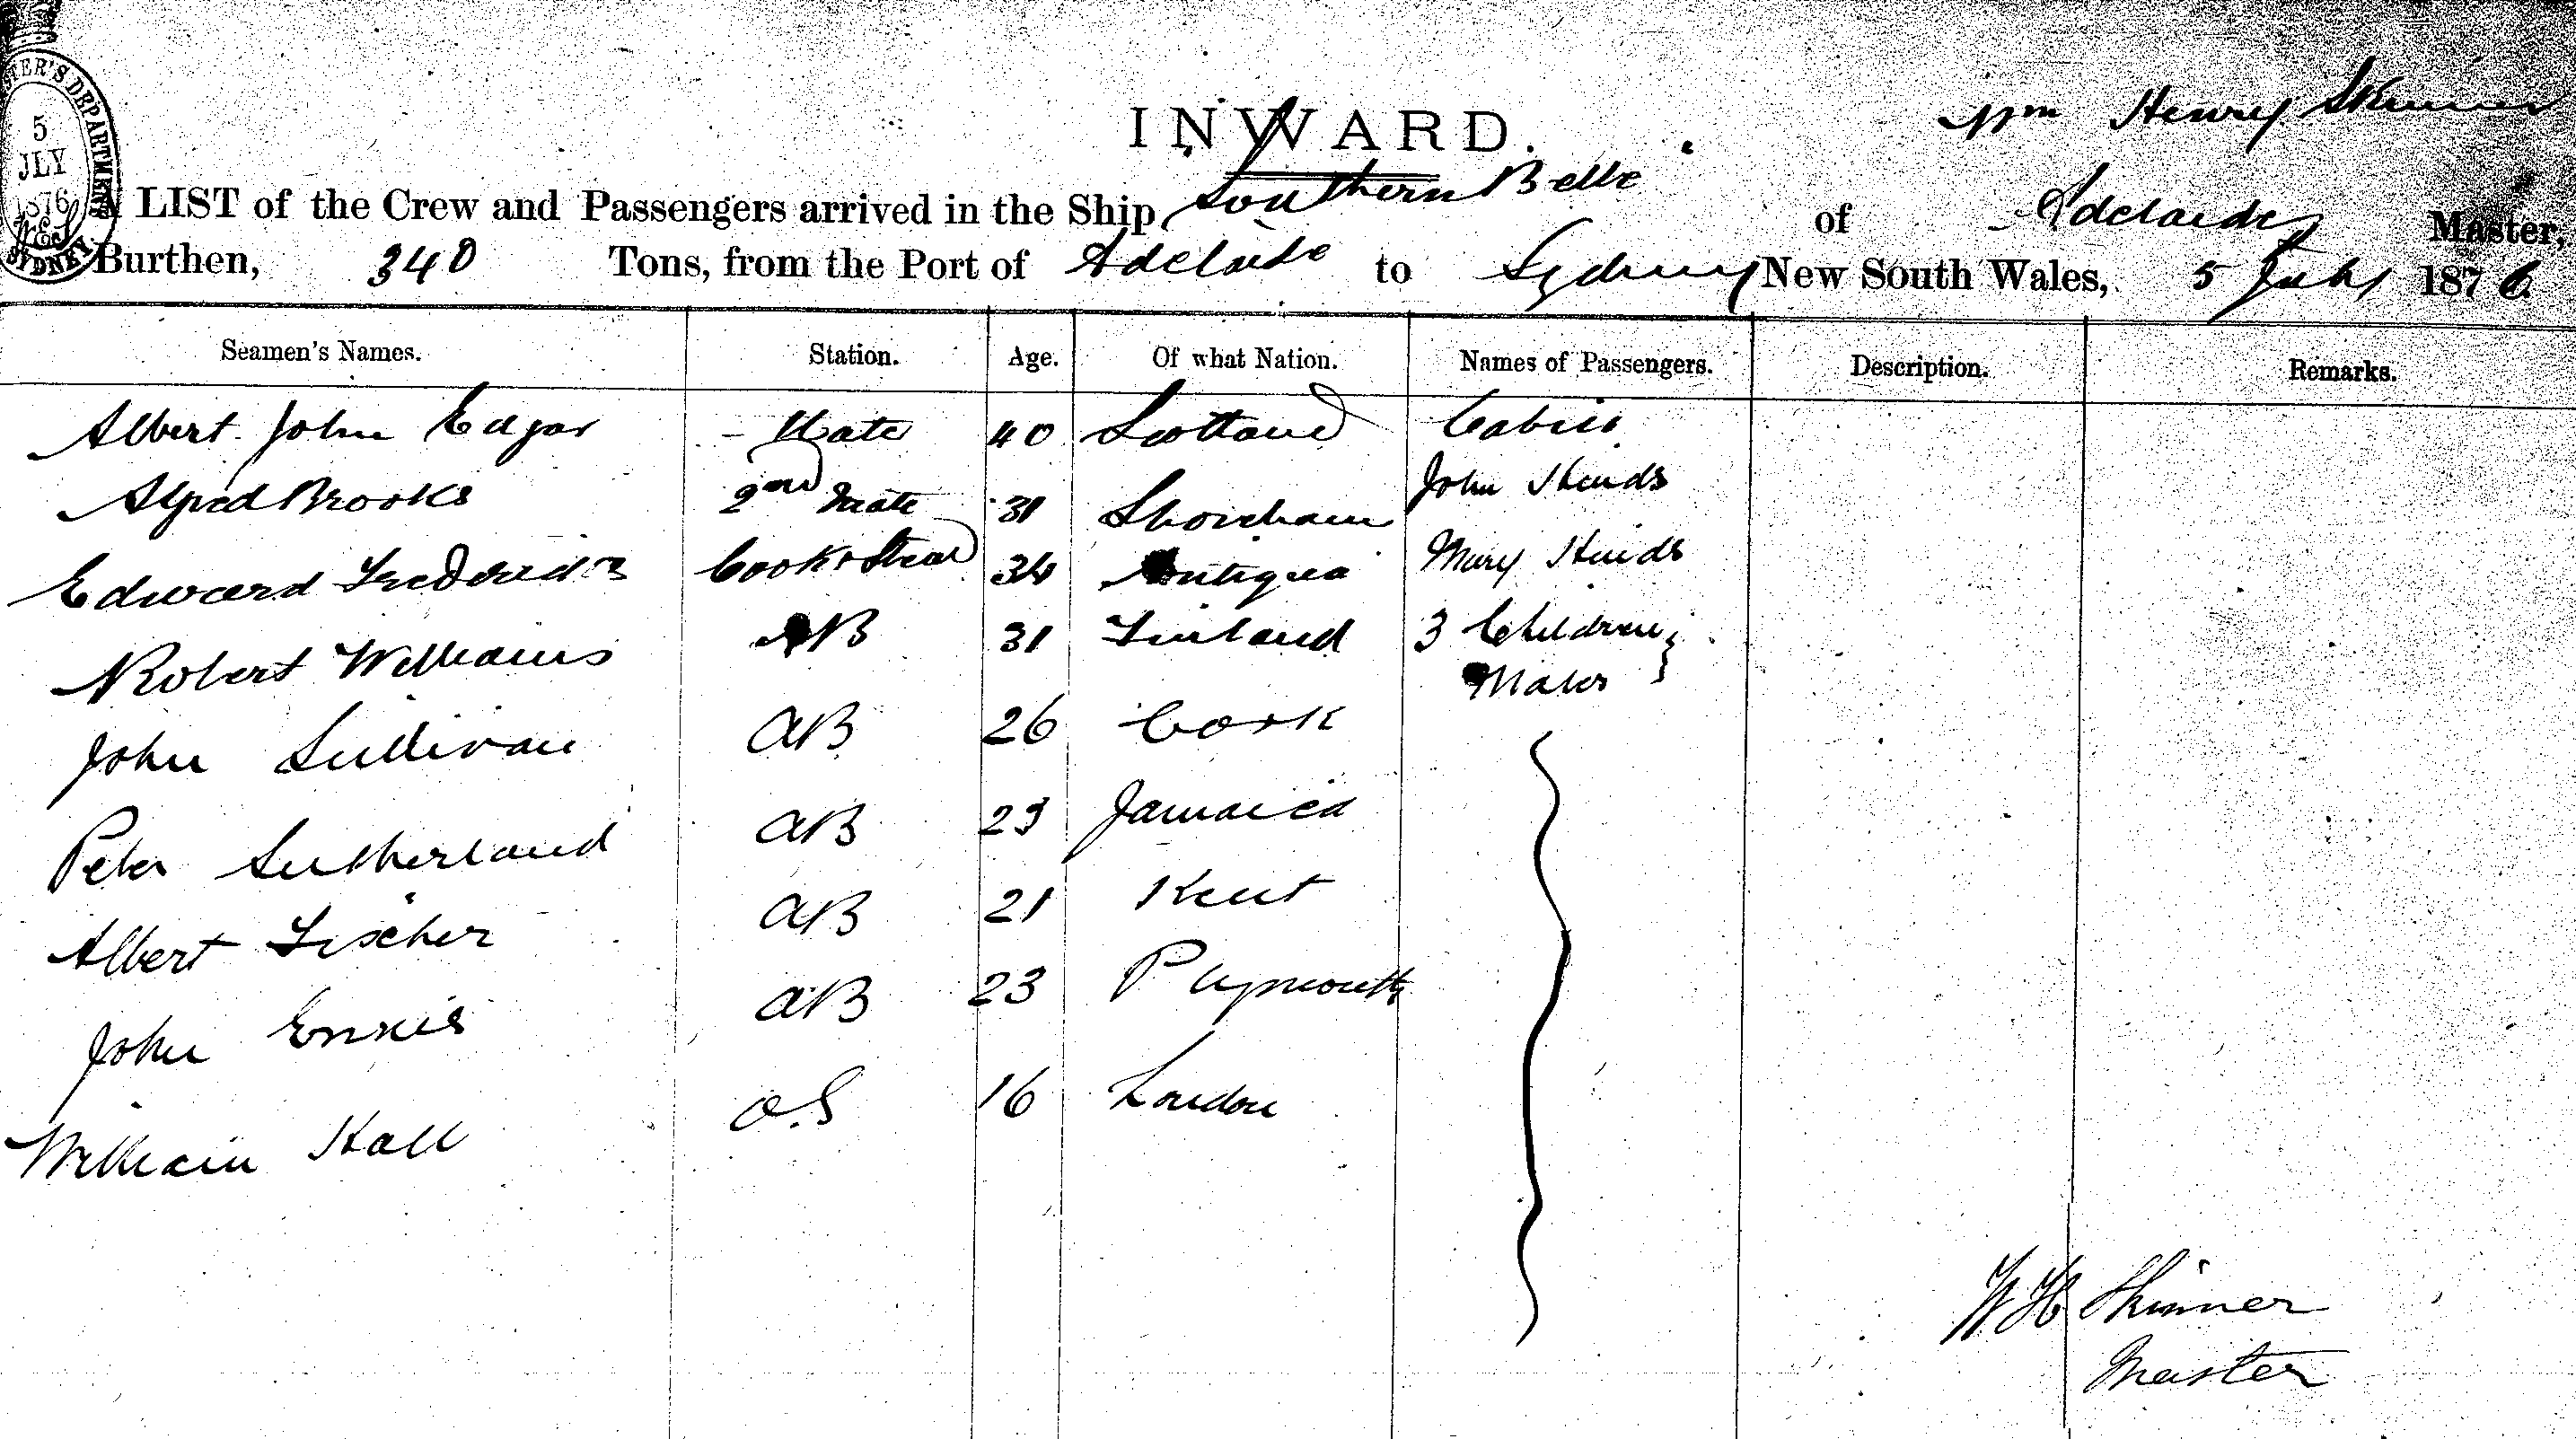 TER'S DEPARTMENT
5
JLY
1876
SYDNEY
INWARD.
Wm Henry Skinner
A LIST of the Crew and Passengers arrived in the Ship Southern Belle of Adelaide Master,
Burthen, 340 Tons, from the Port of Adelaide to Sydney New South Wales, 5 July 1876.
Seamen's Names. Station. Age. Of what Nation. Names of Passengers. Description. Remarks.
Albert John Edgar Mate 40 Scotland Cabin
Alfred Brooks 2nd Mate 31 Shoreham John Hinds
Edward Fredericks Cook & Stead 34 Antigua Mary Hinds
Robert Williams AB 31 Finland 3 Children
Males
John Sullivan AB 26 Cork
Peter Sutherland AB 23 Jamaica
Albert Fischer AB 21 Kent
John Ennis AB 23 Plymouth
William Hall O.S 16 London
W H Skinner
Master